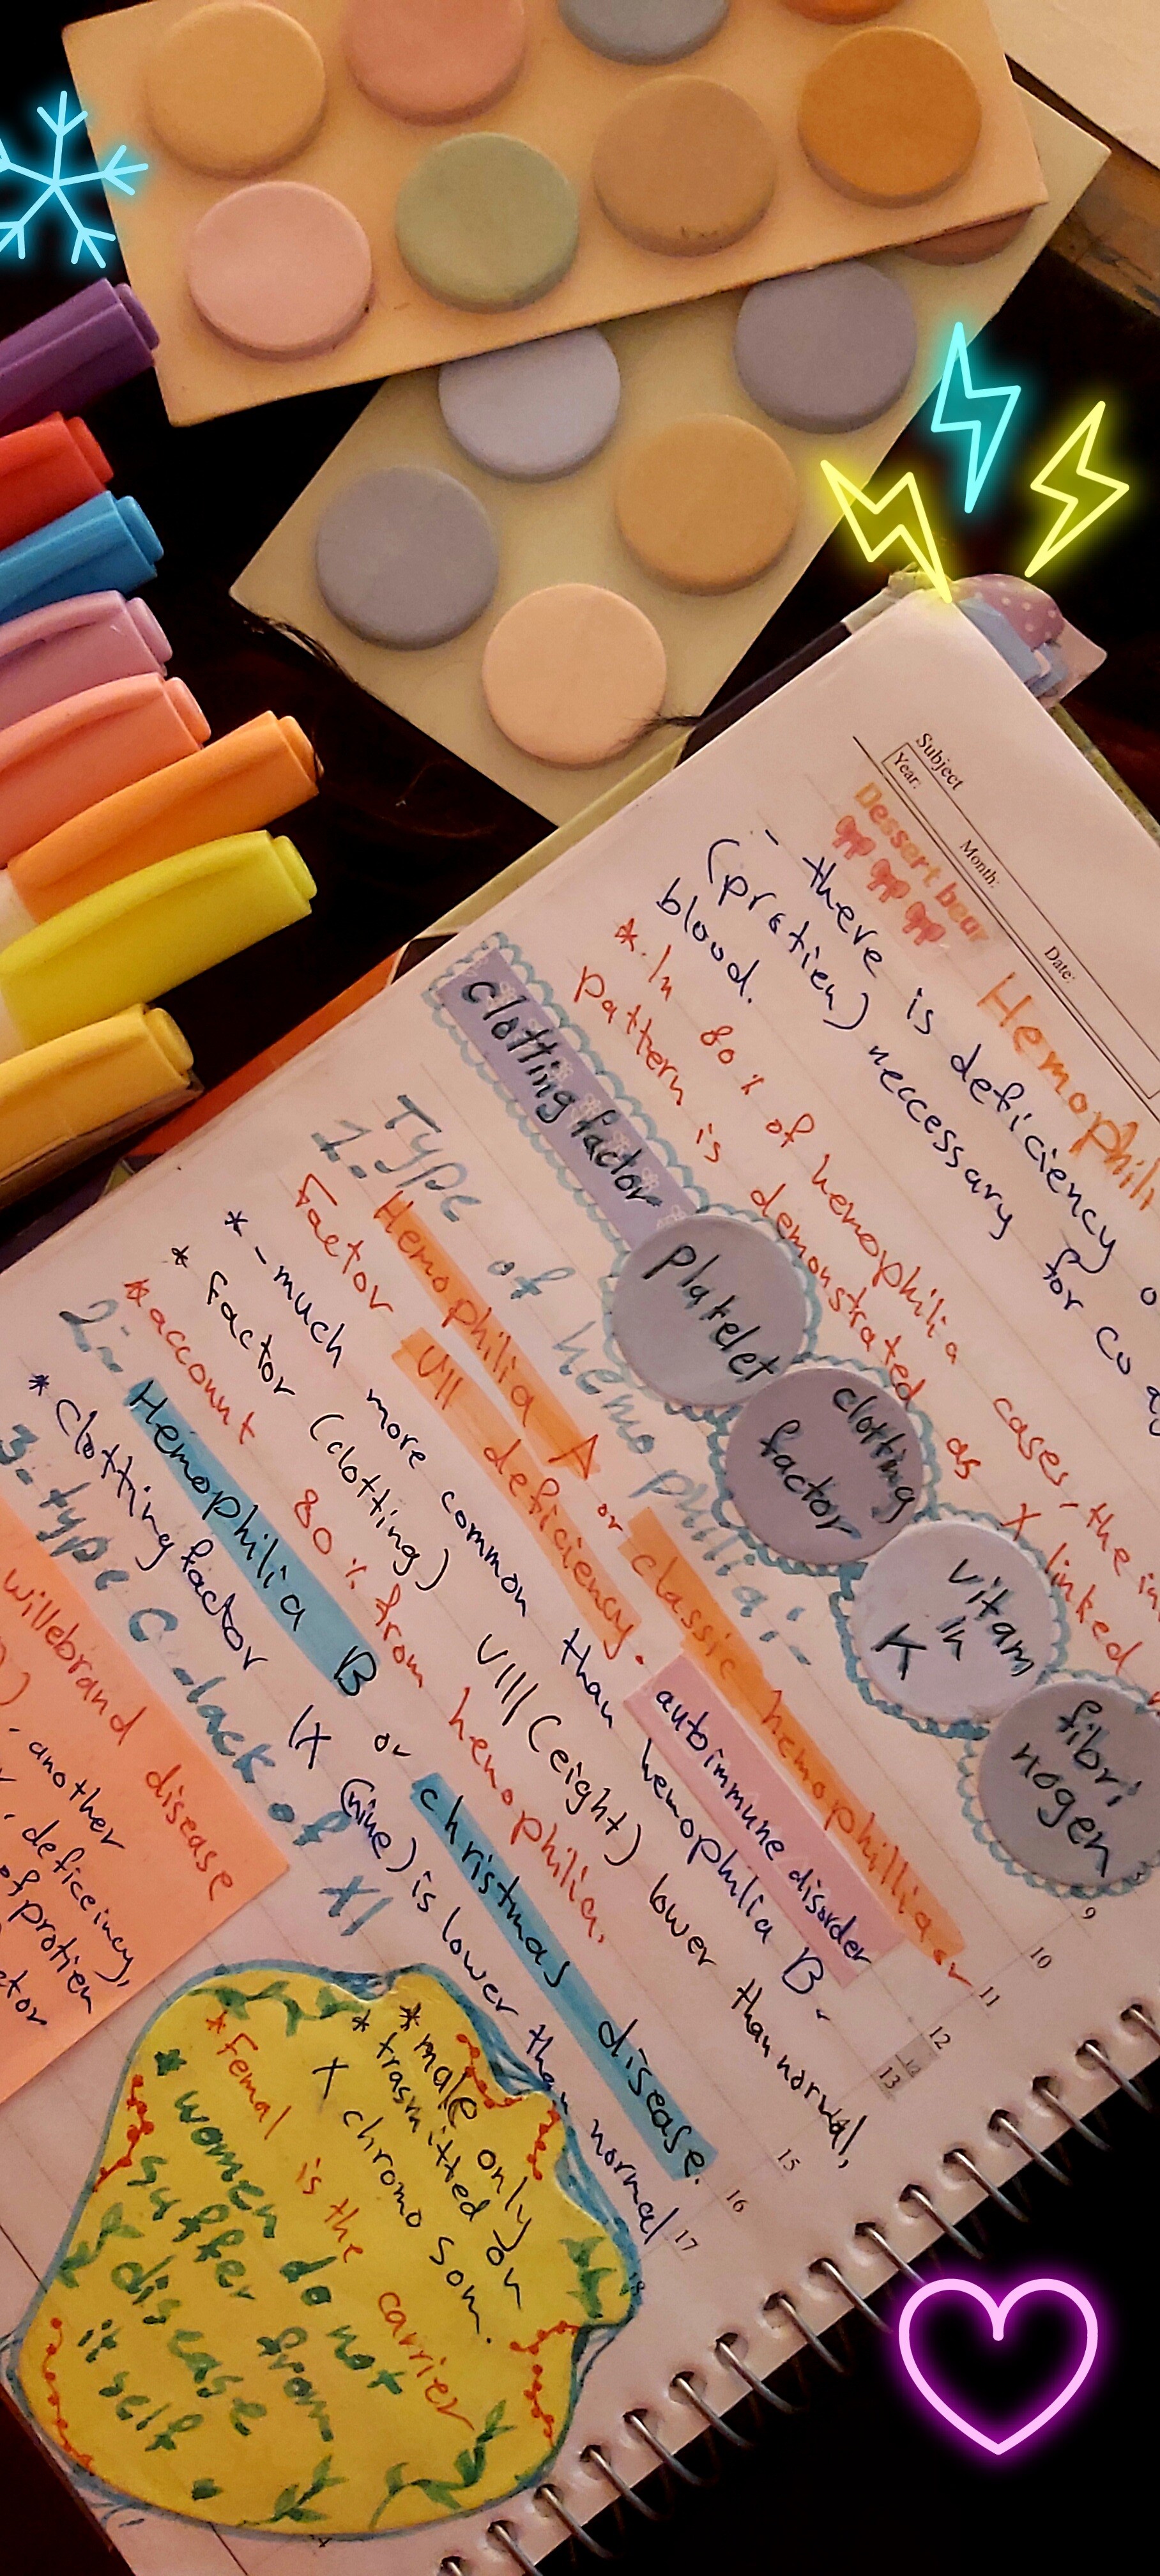 Subject
Year:
Month:
Date:
Dessert bear
Hemophili
- there is deficiency o
(protien) neccessary for coag
blood.
*. In 80% of hemophilia cases, the in
pattern is demonstrated as X linked
clotting factor
platelet
clotting
factor
vitam
in
K
fibri
nogen
Type of hemophilia:-
1:- Hemophilia A or classic hemophillia or
Factor VII deficiency.
autoimmune disorder
* - much more common than hemophilia B-
* Factor (clotting) VIII (eight) lower than normal,
* account 80% from hemophilia.
2:- Hemophilia B or christmas disease.
* Clotting factor IX (nine) is lower than normal
3- type C -lack of XI
willebrand disease
- another
deficeincy,
of protien
ctor
* male only
* trasmitted by
X chromosom.
* Femal is the carrier
* women do not
suffer from
disease
itself
9
10
11
12
13
15
16
17
18